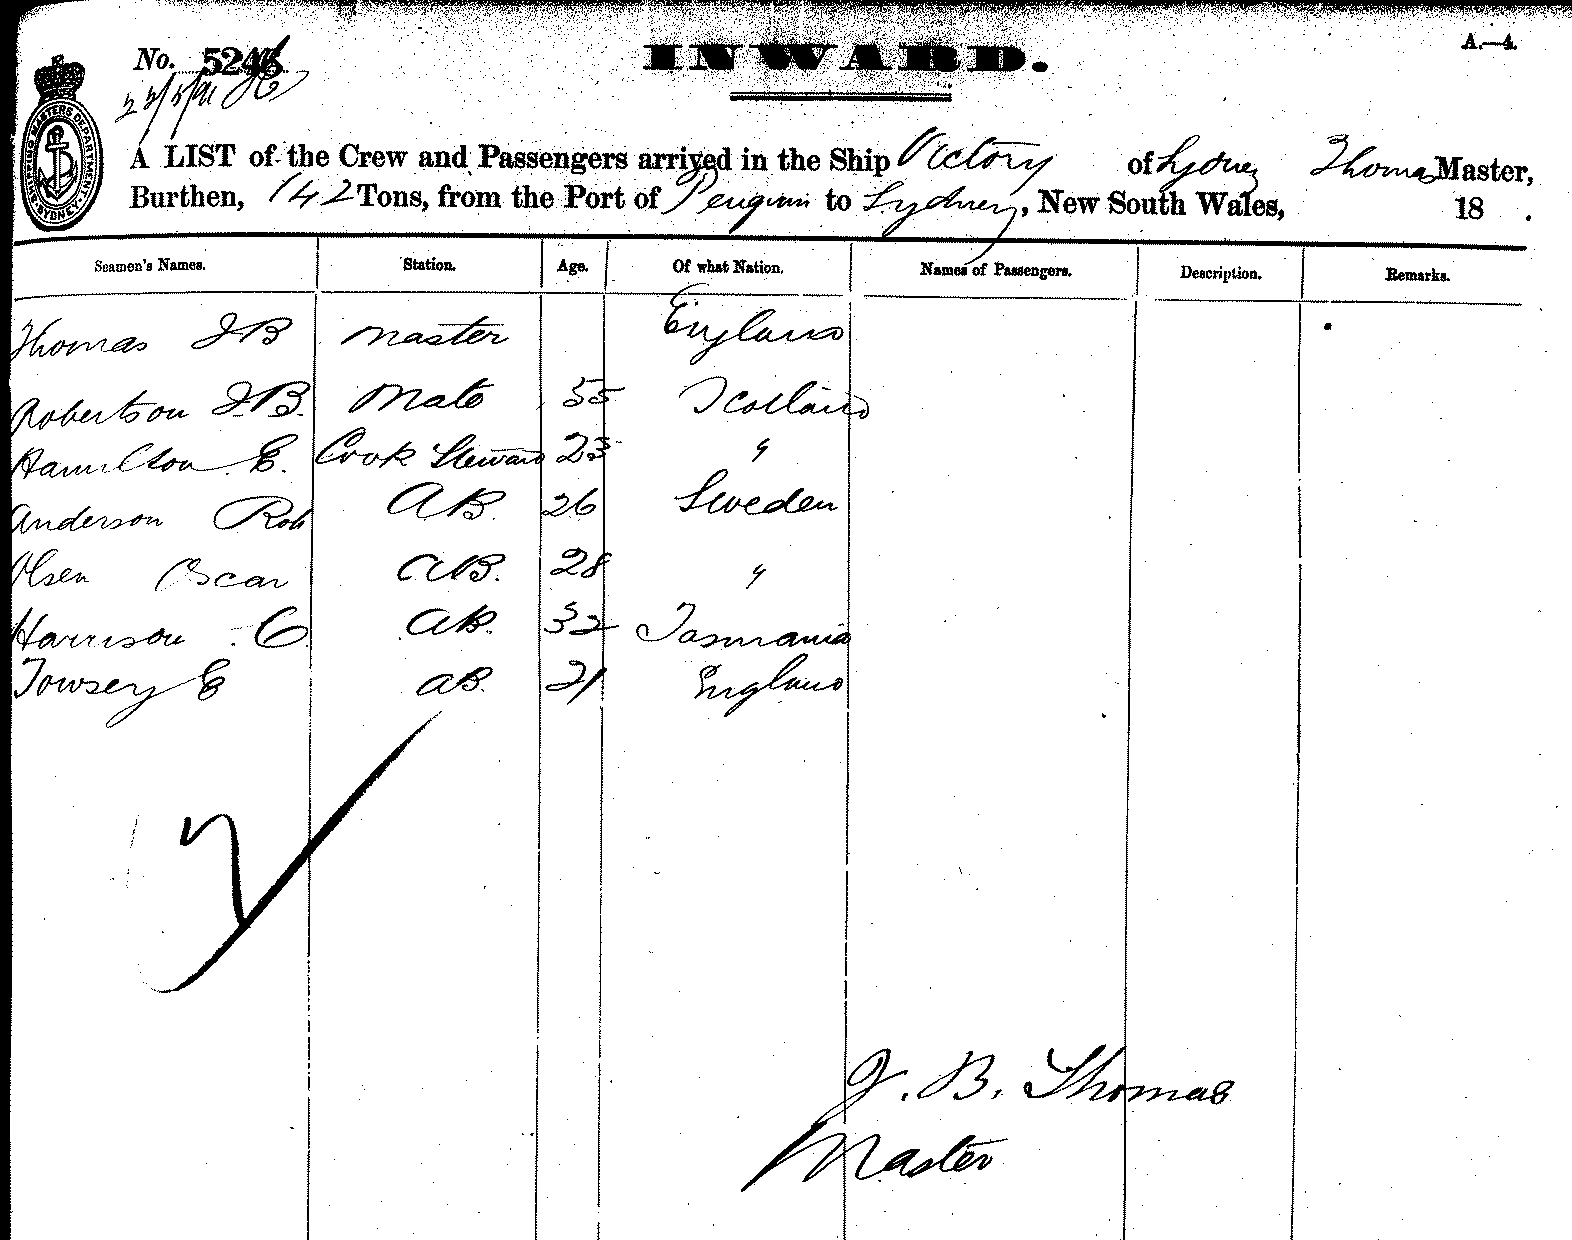 No. 524
INWARD.
A.—4.
22/5/91
SHIPPING MASTERS DEPARTMENT SYDNEY
A LIST of the Crew and Passengers arrived in the Ship Victory of Sydney Thomas Master,
Burthen, 142 Tons, from the Port of Penguin to Sydney, New South Wales, 18 .
Seamen's Names. Station. Age. Of what Nation. Names of Passengers. Description. Remarks.
Thomas J B Master England
Robertson J B. Mate 55 Scotland
Hamilton E. Cook Steward 23 "
Anderson Rob AB. 26 Sweden
Olsen Oscar AB. 28 "
Harrison C AB. 32 Tasmania
Towsey E AB. 21 England
7
J. B. Thomas
Master